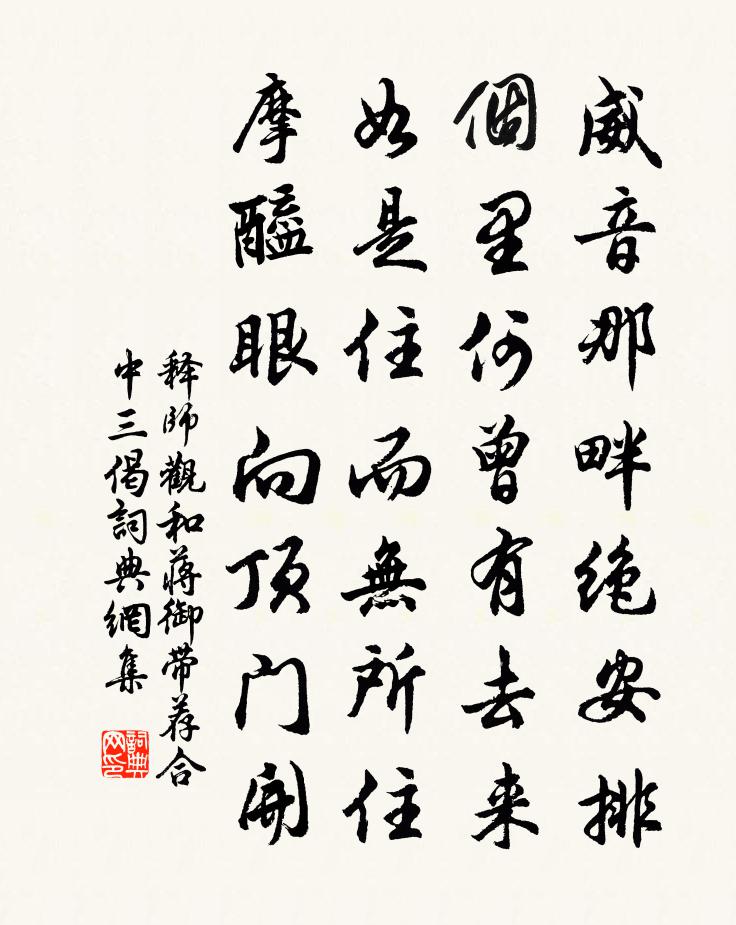 威音那畔绝安排
個里何曾有去来
如是住而無所住
摩醯眼向顶门開
释師觀和蒋御带荐合
中三偈詞典網集
詞典網印